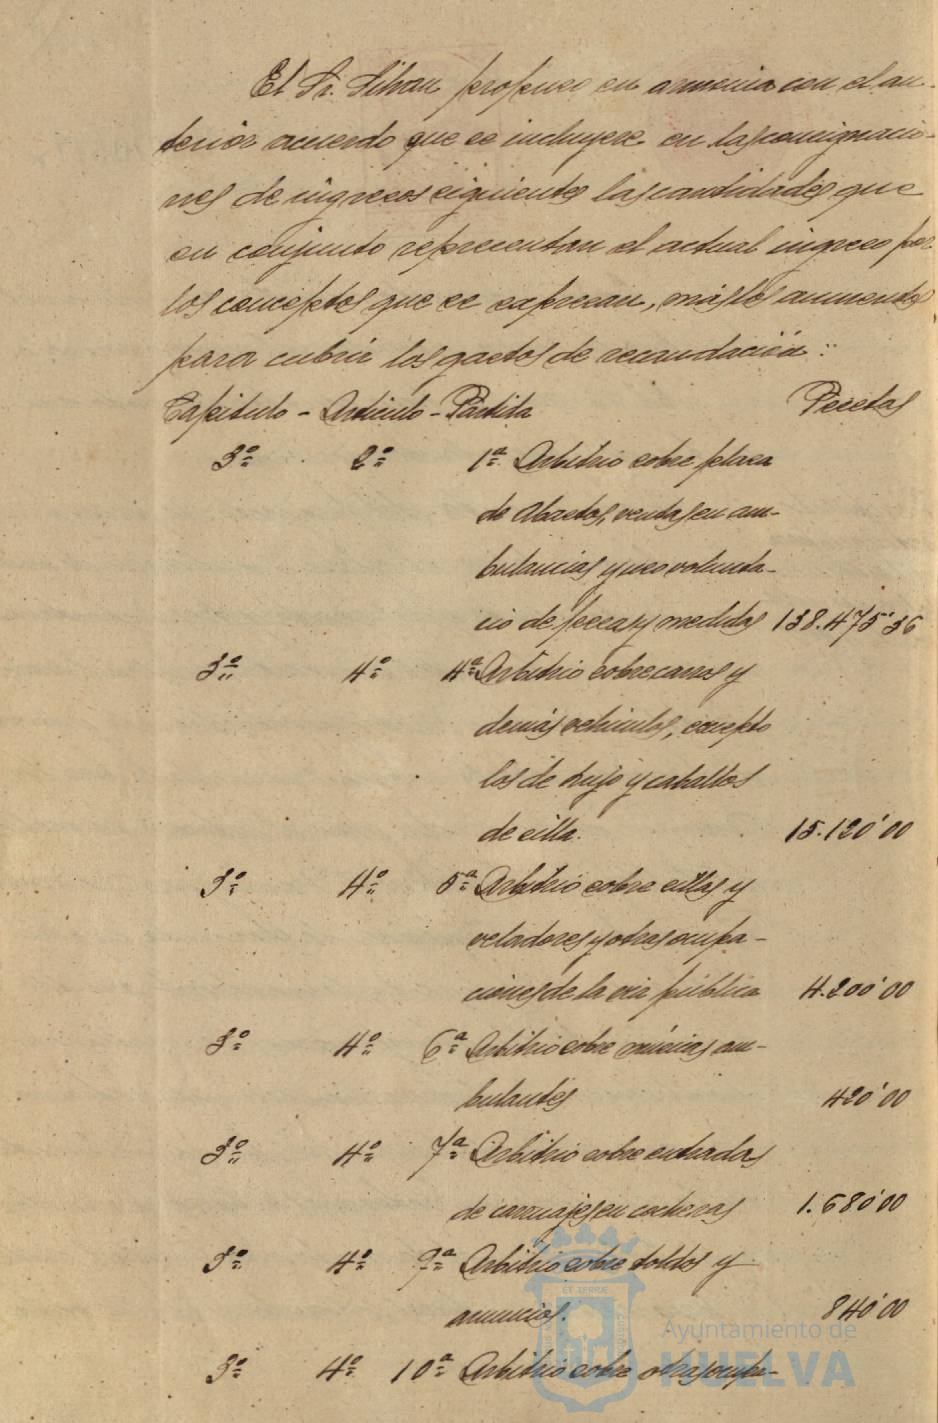 El Sr. Silvan propuso en armonia con el an-
terior acuerdo que se incluyese en las consignacio-
nes de ingresos siguientes las cantidades que
en conjunto representan el actual ingreso por
los conceptos que se expresan, más los aumentos
para cubrir los gastos de recaudación:
Capitulo - Articulo - Partida Pesetas
3º 2º 1ª Arbitrio sobre plaza
de Abastos, ventas en am-
bulancias y uso volunta-
rio de pesas y medidas 138.475'36
3º 4º 4ª Arbitrio sobre carros y
demás vehiculos, excepto
los de lujo y caballos
de silla. 15.120'00
3º 4º 5ª Arbitrio sobre sillas y
veladores y otras ocupa-
ciones de la via pública 4.200'00
3º 4º 6ª Arbitrio sobre músicas am-
bulantes 420'00
3º 4º 7ª Arbitrio sobre entradas
de carruajes en cocheras 1.680'00
3º 4º 9ª Arbitrio sobre toldos y
anuncios. 840'00
3º 4º 10ª Arbitrio sobre otras ocupa-
Ayuntamiento de
HUELVA